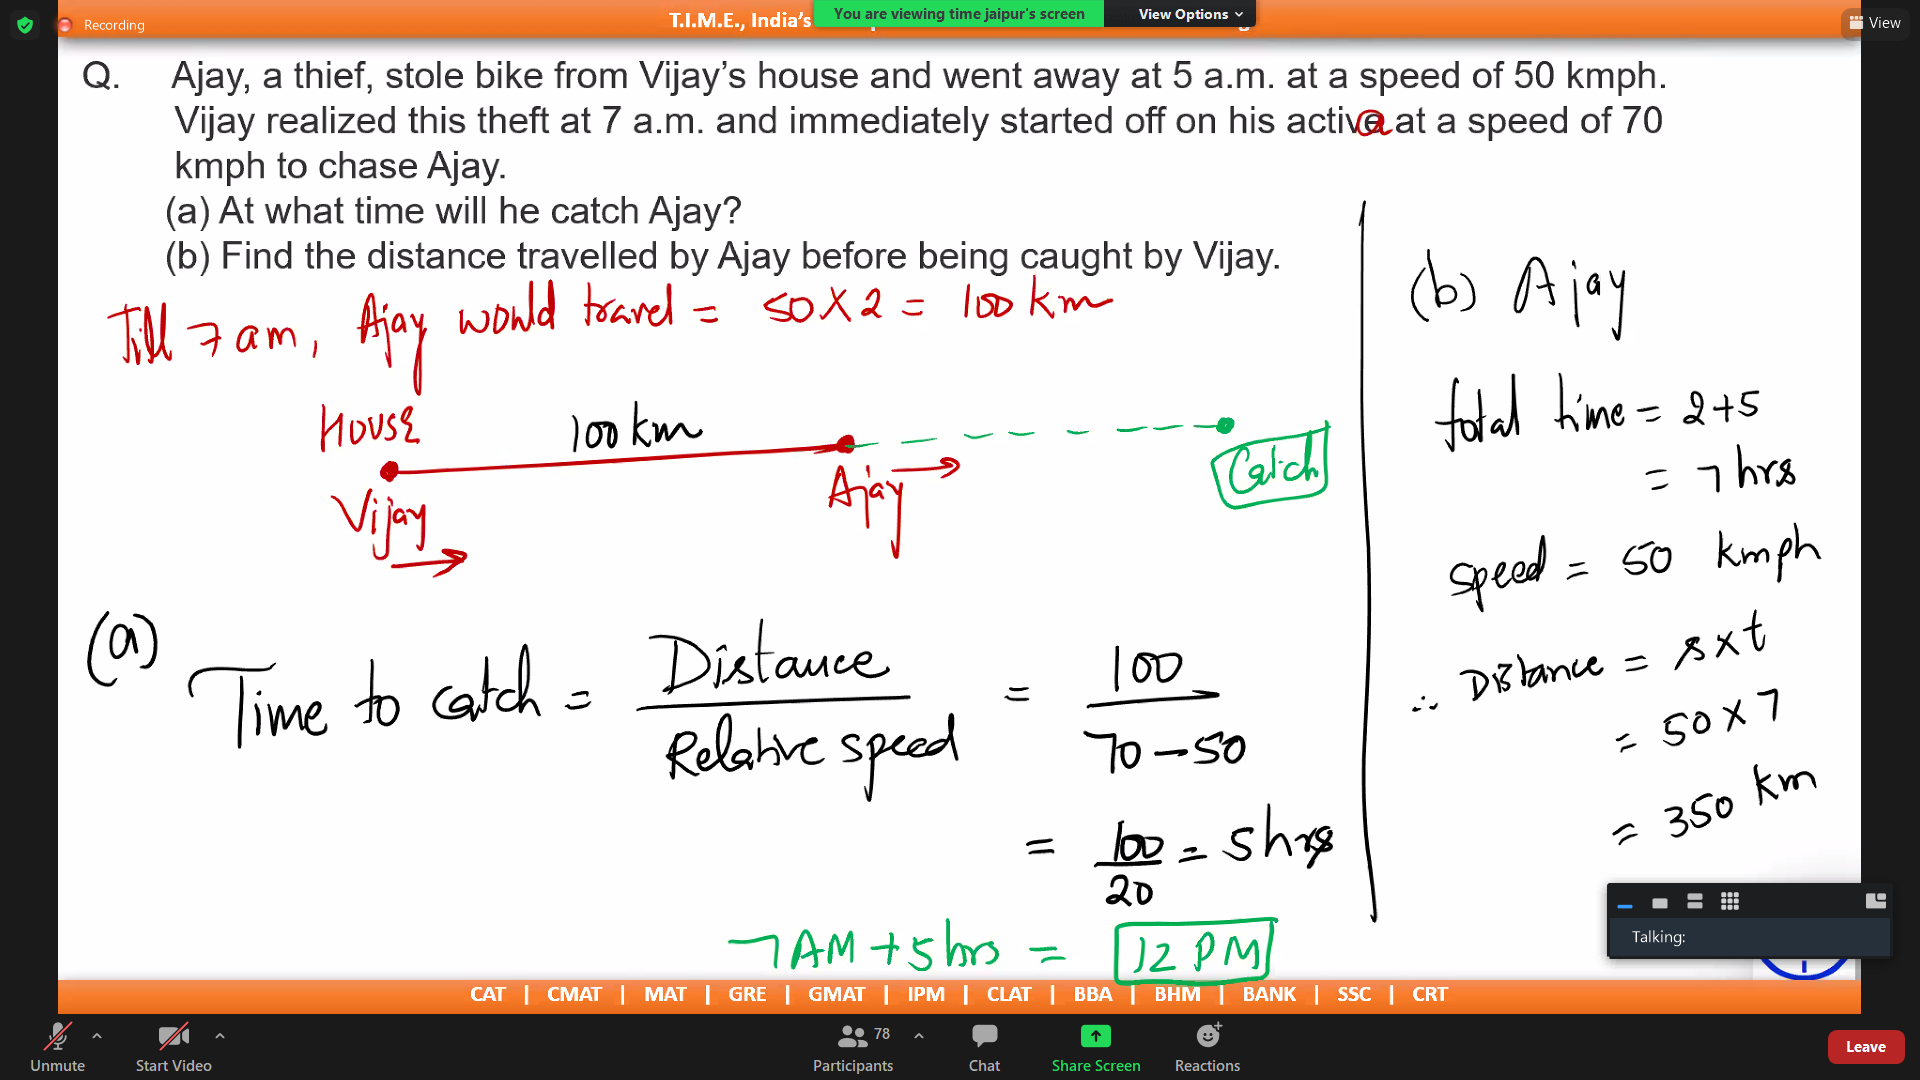 Recording
T.I.M.E., India's
You are viewing time jaipur's screen
View Options
View
Q. Ajay, a thief, stole bike from Vijay's house and went away at 5 a.m. at a speed of 50 kmph.
Vijay realized this theft at 7 a.m. and immediately started off on his activa at a speed of 70
kmph to chase Ajay.
(a) At what time will he catch Ajay?
(b) Find the distance travelled by Ajay before being caught by Vijay.
Till 7 am, Ajay would travel = 50 X 2 = 100 km
House
100 km
Catch
Vijay
Ajay
(a)
Time to catch = Distance / Relative speed = 100 / 70 - 50
= 100 / 20 = 5 hrs
7 AM + 5 hrs = 12 PM
(b) Ajay
total time = 2+5
= 7 hrs
speed = 50 kmph
∴ Distance = s x t
= 50 x 7
= 350 km
Talking:
CAT | CMAT | MAT | GRE | GMAT | IPM | CLAT | BBA | BHM | BANK | SSC | CRT
Unmute
Start Video
78
Participants
Chat
Share Screen
Reactions
Leave